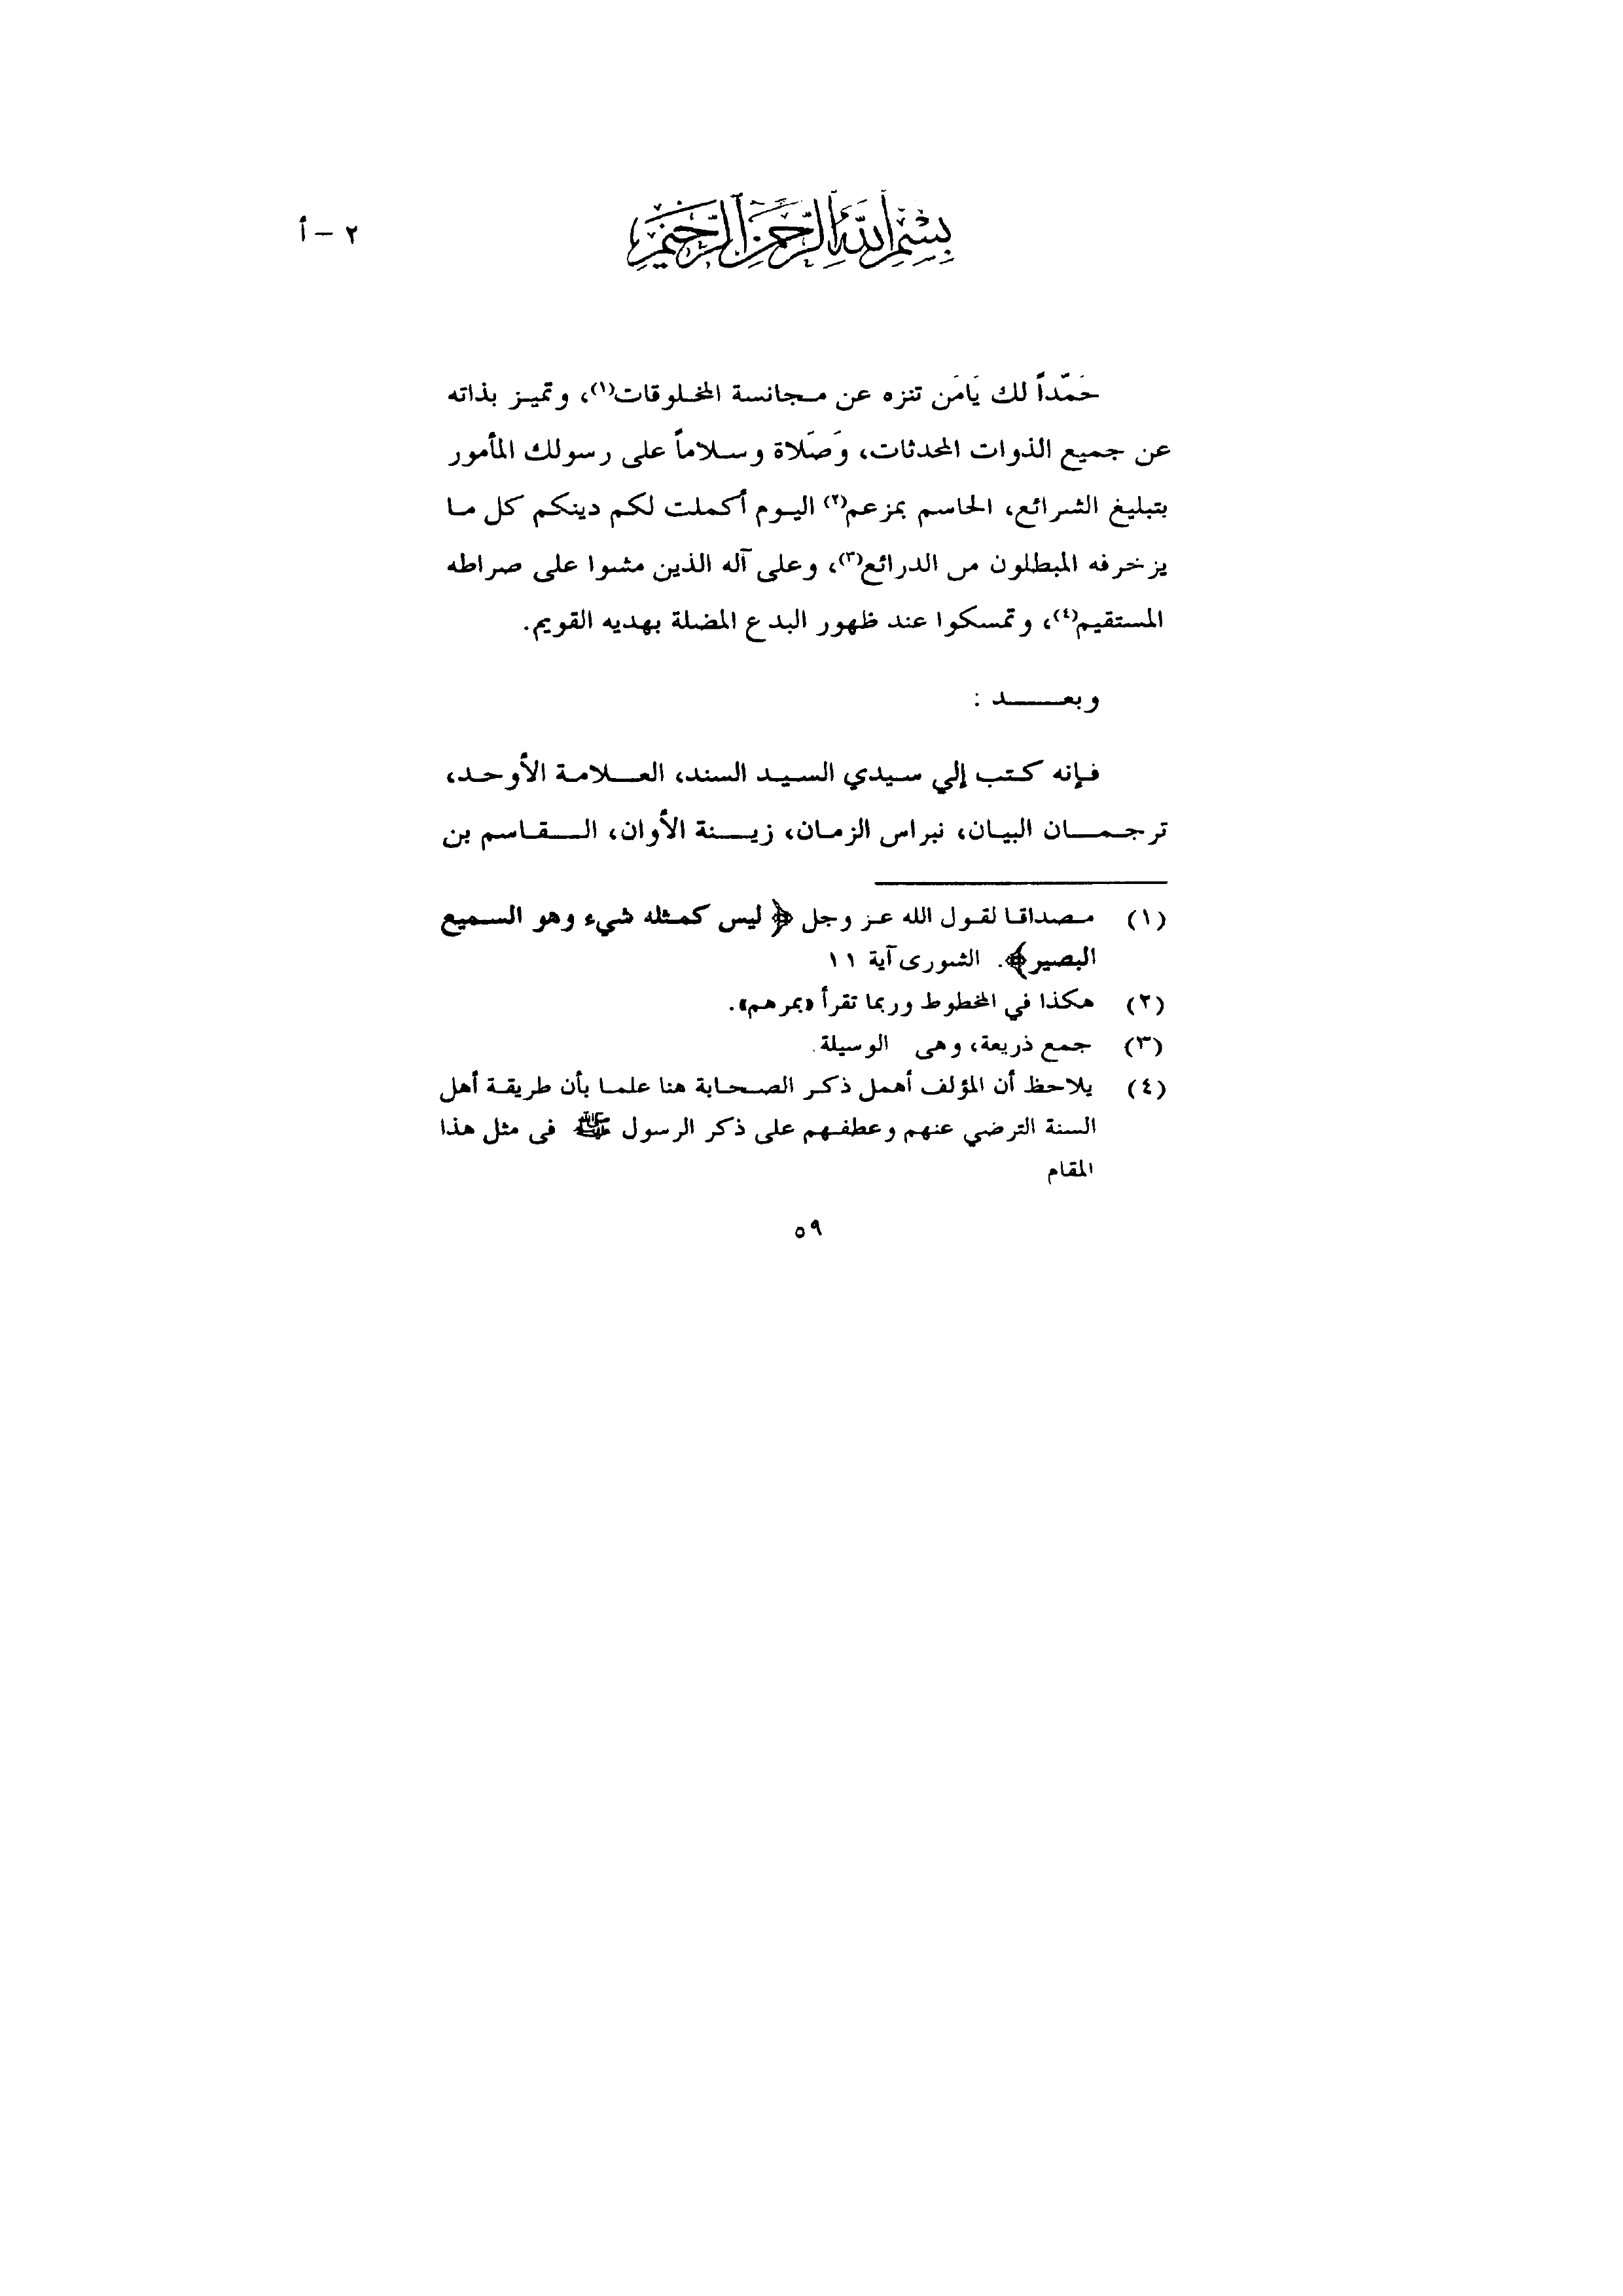 بسم الله الرحمن الرحيم
٢ – أ
حَمّداً لك يَامَن تنزه عن مجانسة المخلوقات(١)، وتميز بذاته
عن جميع الذوات المحدثات، وَصَلاة وسلاماً على رسولك المأمور
بتبليغ الشرائع، الحاسم بمزعم(٢) اليوم أكملت لكم دينكم كل ما
يزخرفه المبطلون من الدرائع(٣)، وعلى آله الذين مشوا على صراطه
المستقيم(٤)، وتمسكوا عند ظهور البدع المضلة بهديه القويم.
وبعــــد :
فإنه كتب إلي سيدي السيد السند، العلامة الأوحد،
ترجمان البيان، نبراس الزمان، زينة الأوان، القاسم بن
(١) مصداقا لقول الله عز وجل ﴿ ليس كمثله شيء وهو السميع
البصير﴾. الشورى آية ١١
(٢) هكذا في المخطوط وربما تقرأ «بمرهم».
(٣) جمع ذريعة، وهى الوسيلة.
(٤) يلاحظ أن المؤلف أهمل ذكر الصحابة هنا علما بأن طريقة أهل
السنة الترضي عنهم وعطفهم على ذكر الرسول ﷺ فى مثل هذا
المقام
٥٩